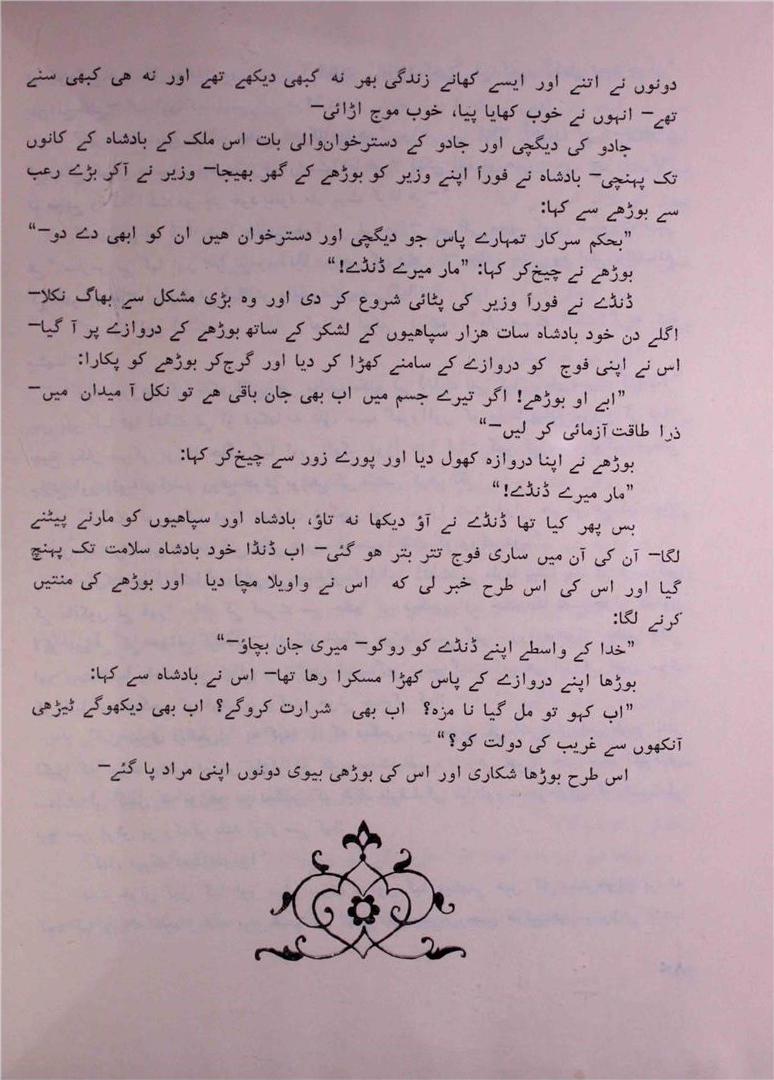 دونوں نے اتنے اور ایسے کھانے زندگی بھر نہ کبھی دیکھے تھے اور نہ ھی کبھی سنے
تھے— انہوں نے خوب کھایا پیا، خوب موج اڑائی—
جادو کی دیگچی اور جادو کے دسترخوان‌والی بات اس ملک کے بادشاہ کے کانوں
تک پہنچی— بادشاہ نے فوراً اپنے وزیر کو بوڑھے کے گھر بھیجا— وزیر نے آکر بڑے رعب
سے بوڑھے سے کہا:
”بحکم سرکار تمہارے پاس جو دیگچی اور دسترخوان ھیں ان کو ابھی دے دو—“
بوڑھے نے چیخ‌کر کہا: ”مار میرے ڈنڈے!“
ڈنڈے نے فوراً وزیر کی پٹائی شروع کر دی اور وہ بڑی مشکل سے بھاگ نکلا—
اگلے دن خود بادشاہ سات ھزار سپاھیوں کے لشکر کے ساتھ بوڑھے کے دروازے پر آ گیا—
اس نے اپنی فوج کو دروازے کے سامنے کھڑا کر دیا اور گرج‌کر بوڑھے کو پکارا:
”ابے او بوڑھے! اگر تیرے جسم میں اب بھی جان باقی ھے تو نکل آ میدان میں—
ذرا طاقت‌آزمائی کر لیں—“
بوڑھے نے اپنا دروازہ کھول دیا اور پورے زور سے چیخ‌کر کہا:
”مار میرے ڈنڈے!“
بس پھر کیا تھا ڈنڈے نے آؤ دیکھا نہ تاؤ، بادشاہ اور سپاھیوں کو مارنے پیٹنے
لگا— آن کی آن میں ساری فوج تتر بتر ھو گئی— اب ڈنڈا خود بادشاہ سلامت تک پہنچ
گیا اور اس کی اس طرح خبر لی کہ اس نے واویلا مچا دیا اور بوڑھے کی منتیں
کرنے لگا:
”خدا کے واسطے اپنے ڈنڈے کو روکو— میری جان بچاؤ—“
بوڑھا اپنے دروازے کے پاس کھڑا مسکرا رھا تھا— اس نے بادشاہ سے کہا:
”اب کہو تو مل گیا نا مزہ؟ اب بھی شرارت کروگے؟ اب بھی دیکھوگے ٹیڑھی
آنکھوں سے غریب کی دولت کو؟“
اس طرح بوڑھا شکاری اور اس کی بوڑھی بیوی دونوں اپنی مراد پا گئے—